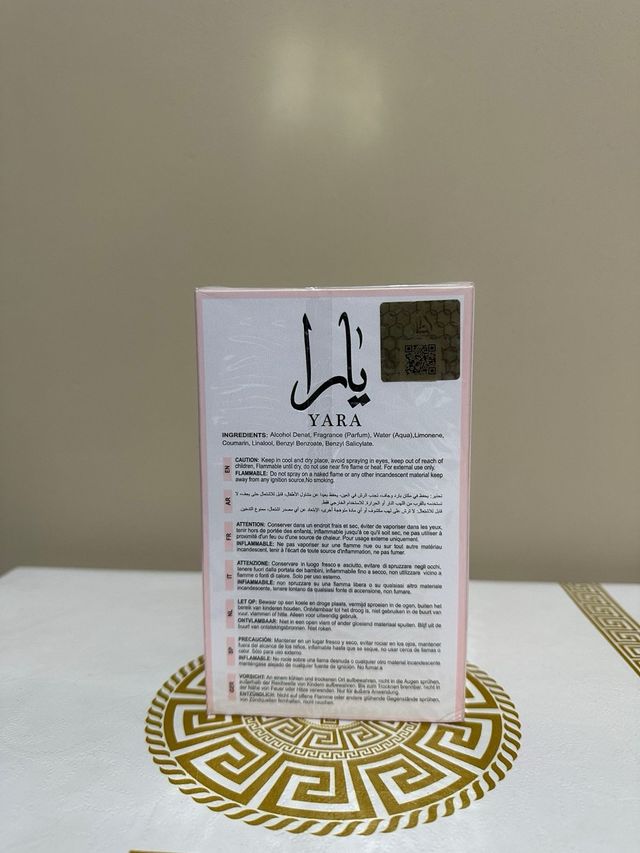 يارا
YARA
INGREDIENTS: Alcohol Denat, Fragrance (Parfum), Water (Aqua),Limonene,
Coumarin, Linalool, Benzyl Benzoate, Benzyl Salicylate.
EN
CAUTION: Keep in cool and dry place, avoid spraying in eyes, keep out of reach of
children, Flammable until dry, do not use near fire flame or heat. For external use only.
FLAMMABLE: Do not spray on a naked flame or any other incandescent material keep
away from any ignition source,No smoking.
AR
تحذير: يحفظ في مكان بارد وجاف، تجنب الرش في العين، يحفظ بعيدا عن متناول الأطفال، قابل للاشتعال حتى يجف، لا
تستخدمه بالقرب من اللهب النار أو الحرارة. للاستخدام الخارجي فقط.
قابل للاشتعال: لا ترش على لهب مكشوف أو أي مادة متوهجة أخرى، الإبتعاد عن أي مصدر اشتعال، ممنوع التدخين.
FR
ATTENTION: Conserver dans un endroit frais et sec, éviter de vaporiser dans les yeux,
tenir hors de portée des enfants, inflammable jusqu'à ce qu'il soit sec, ne pas utiliser à
proximité d'un feu ou d'une source de chaleur. Pour usage externe uniquement.
INFLAMMABLE: Ne pas vaporiser sur une flamme nue ou sur tout autre matériau
incandescent, tenir à l'écart de toute source d'inflammation, ne pas fumer.
IT
ATTENZIONE: Conservare in luogo fresco e asciutto, evitare di spruzzare negli occhi,
tenere fuori dalla portata dei bambini, infiammabile fino a secco, non utilizzare vicino a
fiamme o fonti di calore. Solo per uso esterno.
INFIAMMABILE: non spruzzare su una fiamma libera o su qualsiasi altro materiale
incandescente, tenere lontano da qualsiasi fonte di accensione, non fumare.
NL
LET OP: Bewaar op een koele en droge plaats, vermijd sproeien in de ogen, buiten het
bereik van kinderen houden. Ontvlambaar tot het droog is, niet gebruiken in de buurt van
vuur, vlammen of hitte. Alleen voor uitwendig gebruik.
ONTVLAMBAAR: Niet in een open vlam of ander gloeiend materiaal spuiten. Blijf uit de
buurt van ontstekingsbronnen. Niet roken.
SP
PRECAUCIÓN: Mantener en un lugar fresco y seco, evitar rociar en los ojos, mantener
fuera del alcance de los niños, inflamable hasta que se seque, no usar cerca de llamas o
calor. Sólo para uso externo.
INFLAMABLE: No rocíe sobre una llama desnuda o cualquier otro material incandescente
manténgase alejado de cualquier fuente de ignición. No fumar.
GER
VORSICHT: An einem kühlen und trockenen Ort aufbewahren, nicht in die Augen sprühen,
außerhalb der Reichweite von Kindern aufbewahren. Bis zum Trocknen brennbar, nicht in
der Nähe von Feuer oder Hitze verwenden. Nur für äußere Anwendung.
ENTZÜNDLICH: Nicht auf offene Flamme oder andere glühende Gegenstände sprühen,
von Zündquellen fernhalten, nicht rauchen.